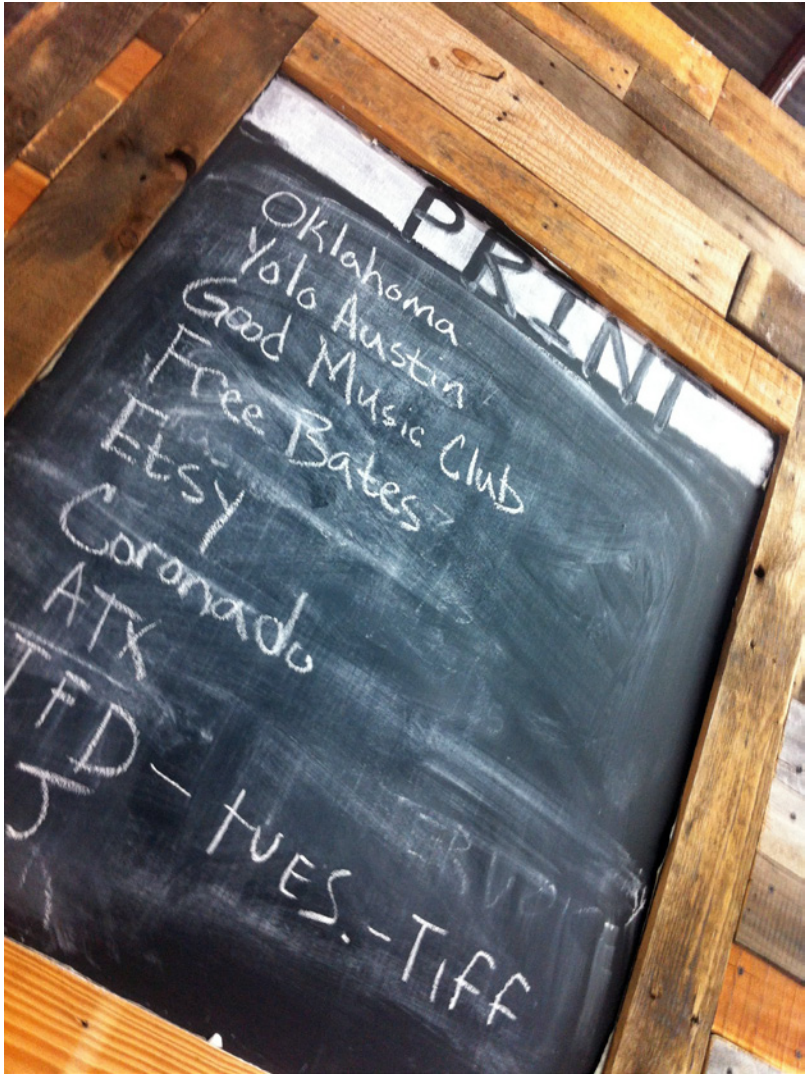 PRINT
Oklahoma
Yolo Austin
Good Music Club
Free Bates
Etsy
Coronado
ATX
TFD - tUES. - Tiff
J